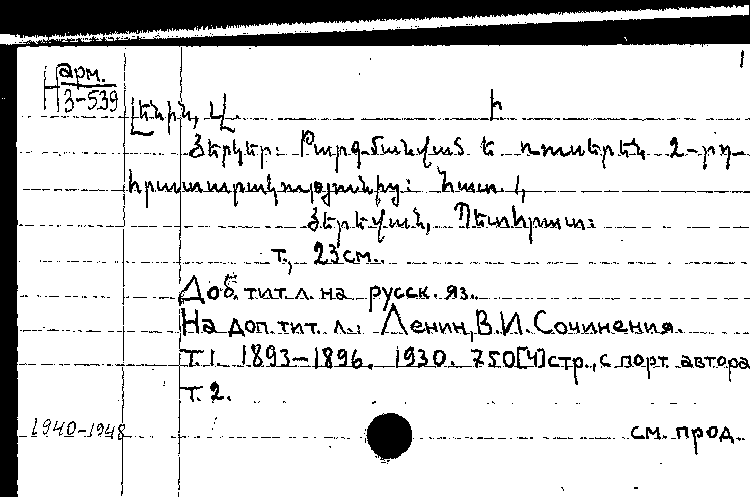 1
арм.
Н 3-539
Լենին, Վ. Ի
Յերկեր: Թարգմանված է ռուսերեն 2-րդ
հրատարակությունից: Հատ. 1,
Յերեվան, Պետհրատ:
т., 23см.
Доб. тит. л. на русск. яз.
На доп. тит. л.: Ленин, В.И. Сочинения.
Т.1. 1893-1896. 1930. 750[4]стр., с порт. автора
Т. 2.
1940-1948
см. прод.